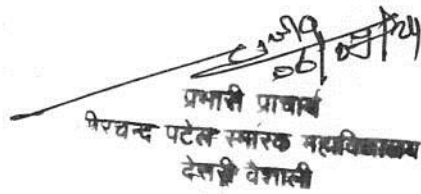 06/09/24
प्रभारी प्राचार्य
बीरचन्द पटेल स्मारक महाविद्यालय
देसरी वैशाली